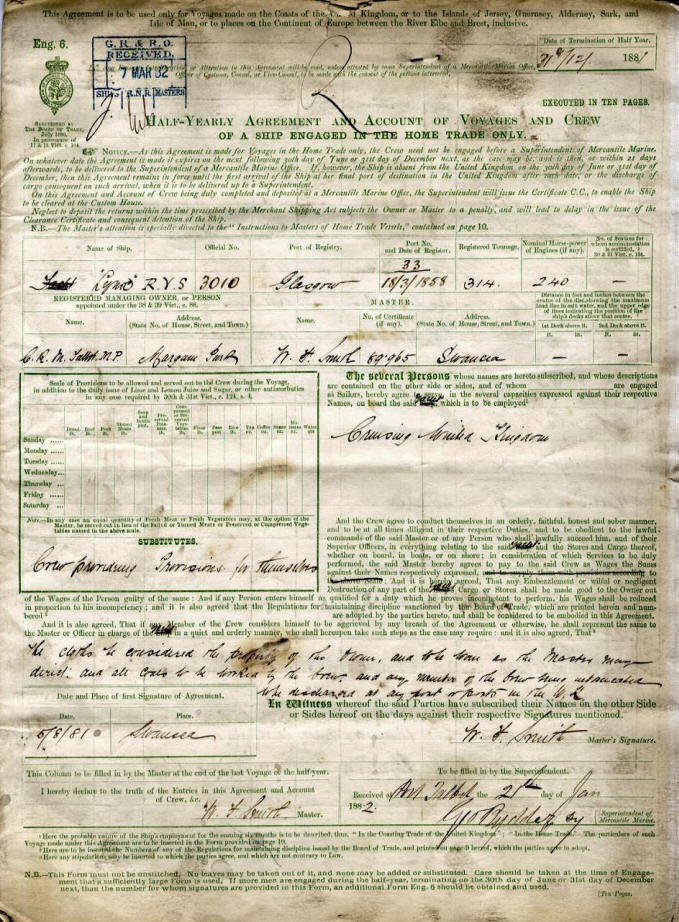 This Agreement is to be used only for Voyages made on the Coasts of the United Kingdom, or to the Islands of Jersey, Guernsey, Alderney, Sark, and
Isle of Man, or to places on the Continent of Europe between the River Elbe and Brest, inclusive.
Eng. 6.
G. R. & R. O.
RECEIVED
7 MAR 82
SHIPS R.N.R. MASTERS
Date of Termination of Half Year,
31st/12/ 1881
EXECUTED IN TEN PAGES.
SANCTIONED BY
THE BOARD OF TRADE,
July 1880,
In pursuance of
HALF-YEARLY AGREEMENT AND ACCOUNT OF VOYAGES AND CREW
OF A SHIP ENGAGED IN THE HOME TRADE ONLY.
NOTICE.—As this Agreement is made for Voyages in the Home Trade only, the Crew need not be engaged before a Superintendent of Mercantile Marine.
On whatever date the Agreement is made it expires on the next following 30th day of June or 31st day of December next, as the case may be, and is then, or within 21 days
afterwards, to be delivered to the Superintendent of a Mercantile Marine Office. If, however, the Ship is absent from the United Kingdom on the 30th day of June or 31st day of
December, then this Agreement remains in force until the first arrival of the Ship at her final port of destination in the United Kingdom after such date, or the discharge of
cargo consequent on such arrival, when it is to be delivered up to a Superintendent.
On this Agreement and Account of Crew being duly completed and deposited at a Mercantile Marine Office, the Superintendent will issue the Certificate C.C., to enable the Ship
to be cleared at the Custom House.
Neglect to deposit the returns within the time prescribed by the Merchant Shipping Act subjects the Owner or Master to a penalty, and will lead to delay in the issue of the
Clearance Certificate and consequent detention of the Ship.
N.B.—The Master's attention is specially directed to the "Instructions to Masters of Home Trade Vessels," contained on page 10.
Name of Ship. Official No. Port of Registry. Port No. and Date of Register. Registered Tonnage. Nominal Horse-power of Engines (if any).
Lynx R.Y.S 3010 Glasgow 33 18/3/1858 314. 240 —
REGISTERED MANAGING OWNER, OR PERSON
appointed under the 38 & 39 Vict., c. 88.
MASTER.
Distance in feet and inches between the
centre of the disc, showing the maximum
load line in salt water, and the upper edge
of lines indicating the position of the
ship's decks above that centre.
Name. Address, (State No. of House, Street, and Town.) Name. No. of Certificate (if any). Address, (State No. of House, Street, and Town.) 1st Deck above it. 2nd Deck above it.
C. R. M. Talbot, M.P Margam Park W. F. Smith 89.965 Swansea — —
Scale of Provisions to be allowed and served out to the Crew during the Voyage,
in addition to the daily issue of Lime and Lemon Juice and Sugar, or other antiscorbutics
in any case required by 30th & 31st Vict., c. 124, s. 4.
Sunday
Monday
Tuesday
Wednesday
Thursday
Friday
Saturday
Note.—In any case an equal quantity of Fresh Meat or Fresh Vegetables may, at the option of the
Master, be served out in lieu of the Salted or Tinned Meats or Preserved or Compressed Vege-
tables named in the above scale.
SUBSTITUTES.
Crew providing Provisions for themselves
The several Persons whose names are hereto subscribed, and whose descriptions
are contained on the other side or sides, and of whom are engaged
as Sailors, hereby agree to serve in the several capacities expressed against their respective
Names, on board the said which is to be employed
Cruising United Kingdom
And the Crew agree to conduct themselves in an orderly, faithful, honest and sober manner,
and to be at all times diligent in their respective Duties, and to be obedient to the lawful
commands of the said Master or of any Person who shall lawfully succeed him, and of their
Superior Officers, in everything relating to the said and the Stores and Cargo thereof,
whether on board, in boats, or on shore; in consideration of which Services to be duly
performed, the said Master hereby agrees to pay to the said Crew as Wages the Sums
against their Names respectively expressed
And it is hereby agreed, That any Embezzlement or wilful or negligent
Destruction of any part of the Cargo or Stores shall be made good to the Owner out
of the Wages of the Person guilty of the same: And if any Person enters himself as qualified for a duty which he proves incompetent to perform, his Wages shall be reduced
in proportion to his incompetency; and it is also agreed that the Regulations for maintaining discipline sanctioned by the Board of Trade, which are printed herein and num-
bered are adopted by the parties hereto, and shall be considered to be embodied in this Agreement.
And it is also agreed, That if any Member of the Crew considers himself to be aggrieved by any breach of the Agreement or otherwise, he shall represent the same to
the Master or Officer in charge of the in a quiet and orderly manner, who shall thereupon take such steps as the case may require: and it is also agreed, That
The cloths be considered the property of the Owner, and to be worn as the Master may
direct and all Coals to be worked by the Crew, and any member of the Crew being
to be discharged at any port or ports in the U. K
Date and Place of first Signature of Agreement.
In Witness whereof the said Parties have subscribed their Names on the other Side
or Sides hereof on the days against their respective Signatures mentioned.
Date. Place.
5/8/81 Swansea
W. F. Smith Master's Signature.
This Column to be filled in by the Master at the end of the last Voyage of the half-year.
I hereby declare to the truth of the Entries in this Agreement and Account
of Crew, &c.
W. F. Smith Master.
To be filled in by the Superintendent.
Received at Port Talbot the 2nd day of Jan
1882.
Superintendent of
Mercantile Marine.
Here the probable nature of the Ship's employment for the coming six months is to be described, thus, "In the Coasting Trade of the United Kingdom"; "In the Home Trade." The particulars of each
Voyage made under this Agreement are to be inserted in the Form provided on page 10.
Here are to be inserted the Numbers of any of the Regulations for maintaining discipline issued by the Board of Trade, and printed on page 9 hereof, which the parties agree to adopt.
Here any stipulations may be inserted to which the parties agree, and which are not contrary to Law.
N.B.—This Form must not be unstitched. No leaves may be taken out of it, and none may be added or substituted. Care should be taken at the time of Engage-
ment that a sufficiently large Form is used. If more men are engaged during the half-year, terminating on the 30th day of June or 31st day of December
next, than the number for whom signatures are provided in this Form, an additional Form Eng. 6 should be obtained and used.
(Ten Pages.